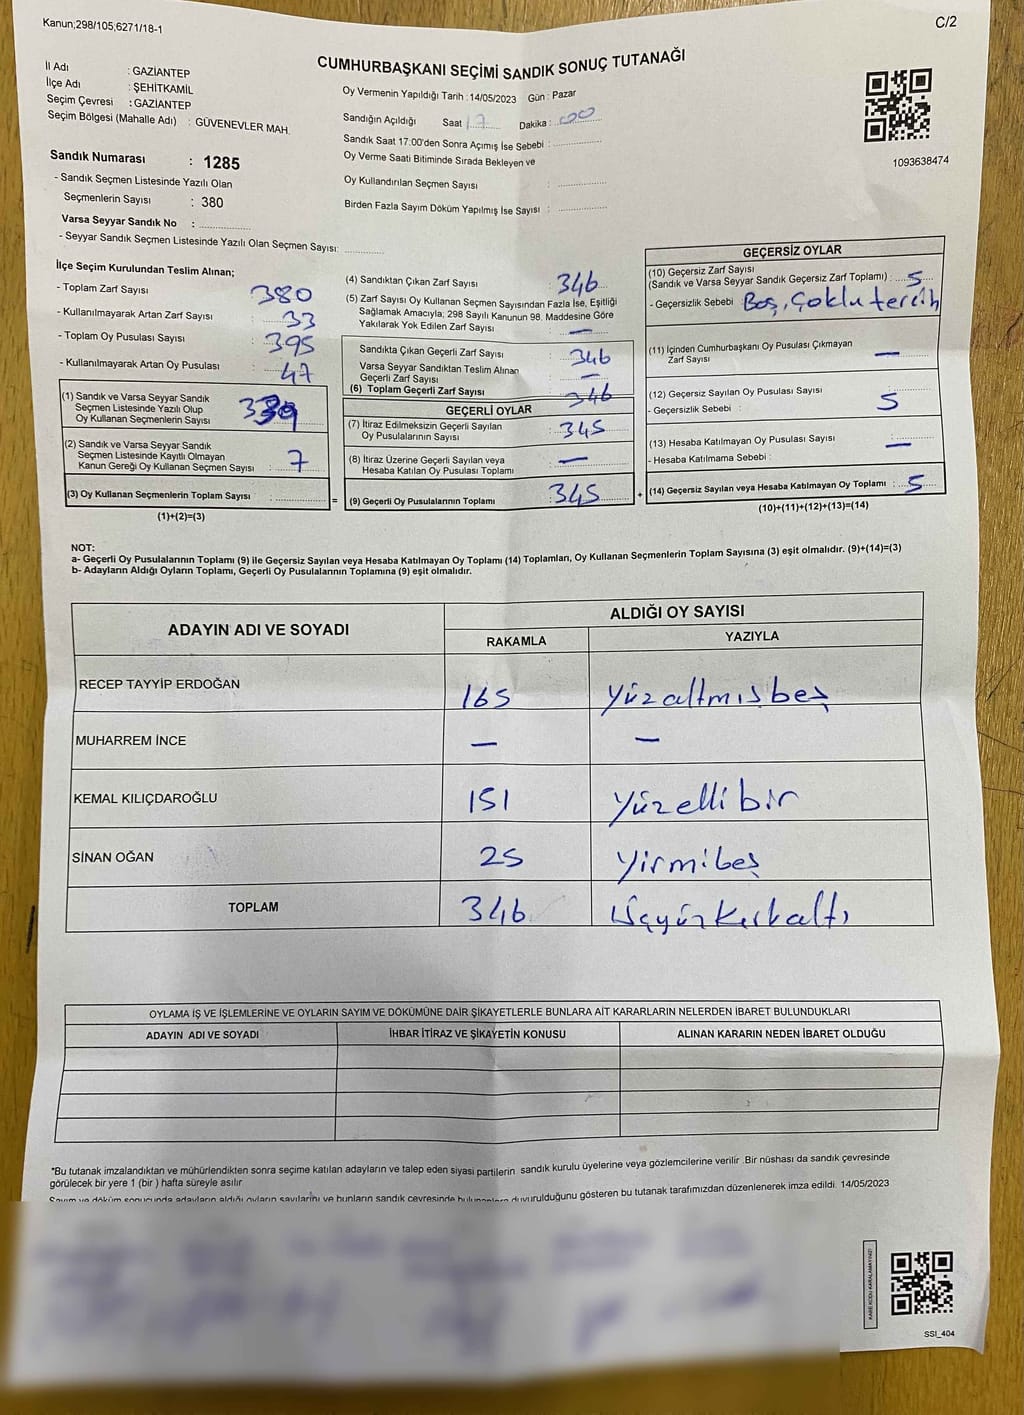 Kanun;298/105;6271/18-1
C/2
CUMHURBAŞKANI SEÇİMİ SANDIK SONUÇ TUTANAĞI
İl Adı : GAZİANTEP
İlçe Adı : ŞEHİTKAMİL
Seçim Çevresi : GAZİANTEP
Seçim Bölgesi (Mahalle Adı) : GÜVENEVLER MAH.
Sandık Numarası : 1285
- Sandık Seçmen Listesinde Yazılı Olan
Seçmenlerin Sayısı : 380
Varsa Seyyar Sandık No :
- Seyyar Sandık Seçmen Listesinde Yazılı Olan Seçmen Sayısı:
Oy Vermenin Yapıldığı Tarih :14/05/2023 Gün : Pazar
Sandığın Açıldığı Saat 17 Dakika : 00
Sandık Saat 17:00'den Sonra Açımış İse Sebebi :
Oy Verme Saati Bitiminde Sırada Bekleyen ve
Oy Kullandırılan Seçmen Sayısı :
Birden Fazla Sayım Döküm Yapılmış İse Sayısı :
1093638474
İlçe Seçim Kurulundan Teslim Alınan;
- Toplam Zarf Sayısı : 380
- Kullanılmayarak Artan Zarf Sayısı : 33
- Toplam Oy Pusulası Sayısı : 395
- Kullanılmayarak Artan Oy Pusulası : 47
(1) Sandık ve Varsa Seyyar Sandık
Seçmen Listesinde Yazılı Olup
Oy Kullanan Seçmenlerin Sayısı : 339
(2) Sandık ve Varsa Seyyar Sandık
Seçmen Listesinde Kayıtlı Olmayan
Kanun Gereği Oy Kullanan Seçmen Sayısı : 7
(3) Oy Kullanan Seçmenlerin Toplam Sayısı :
(1)+(2)=(3)
=
(4) Sandıktan Çıkan Zarf Sayısı : 346
(5) Zarf Sayısı Oy Kullanan Seçmen Sayısından Fazla İse, Eşitliği
Sağlamak Amacıyla; 298 Sayılı Kanunun 98. Maddesine Göre
Yakılarak Yok Edilen Zarf Sayısı : —
Sandıkta Çıkan Geçerli Zarf Sayısı : 346
Varsa Seyyar Sandıktan Teslim Alınan
Geçerli Zarf Sayısı : —
(6) Toplam Geçerli Zarf Sayısı : 346
GEÇERLİ OYLAR
(7) İtiraz Edilmeksizin Geçerli Sayılan
Oy Pusulalarının Sayısı : 345
(8) İtiraz Üzerine Geçerli Sayılan veya
Hesaba Katılan Oy Pusulası Toplamı : —
(9) Geçerli Oy Pusulalarının Toplamı : 345
+
GEÇERSİZ OYLAR
(10) Geçersiz Zarf Sayısı
(Sandık ve Varsa Seyyar Sandık Geçersiz Zarf Toplamı) : 5
- Geçersizlik Sebebi : Boş, Çoklu tercih
(11) İçinden Cumhurbaşkanı Oy Pusulası Çıkmayan
Zarf Sayısı : —
(12) Geçersiz Sayılan Oy Pusulası Sayısı : 5
- Geçersizlik Sebebi :
(13) Hesaba Katılmayan Oy Pusulası Sayısı : —
- Hesaba Katılmama Sebebi :
(14) Geçersiz Sayılan veya Hesaba Katılmayan Oy Toplamı : 5
(10)+(11)+(12)+(13)=(14)
NOT:
a- Geçerli Oy Pusulalarının Toplamı (9) ile Geçersiz Sayılan veya Hesaba Katılmayan Oy Toplamı (14) Toplamları, Oy Kullanan Seçmenlerin Toplam Sayısına (3) eşit olmalıdır. (9)+(14)=(3)
b- Adayların Aldığı Oyların Toplamı, Geçerli Oy Pusulalarının Toplamına (9) eşit olmalıdır.
ADAYIN ADI VE SOYADI ALDIĞI OY SAYISI
RAKAMLA YAZIYLA
RECEP TAYYİP ERDOĞAN 165 yüzaltmışbeş
MUHARREM İNCE — —
KEMAL KILIÇDAROĞLU 151 yüzellibir
SİNAN OĞAN 25 yirmibeş
TOPLAM 346 üçyüzkırkaltı
OYLAMA İŞ VE İŞLEMLERİNE VE OYLARIN SAYIM VE DÖKÜMÜNE DAİR ŞİKAYETLERLE BUNLARA AİT KARARLARIN NELERDEN İBARET BULUNDUKLARI
ADAYIN ADI VE SOYADI İHBAR İTİRAZ VE ŞİKAYETİN KONUSU ALINAN KARARIN NEDEN İBARET OLDUĞU
*Bu tutanak imzalandıktan ve mühürlendikten sonra seçime katılan adayların ve talep eden siyasi partilerin sandık kurulu üyelerine veya gözlemcilerine verilir .Bir nüshası da sandık çevresinde
görülecek bir yere 1 (bir ) hafta süreyle asılır
Sayım ve döküm sonucunda adayların aldığı oyların sayılarını ve bunların sandık çevresinde duyurulduğunu gösteren bu tutanak tarafımızdan düzenlenerek imza edildi. 14/05/2023
KARE KODU KARALAMAYINIZ!
SSI_404